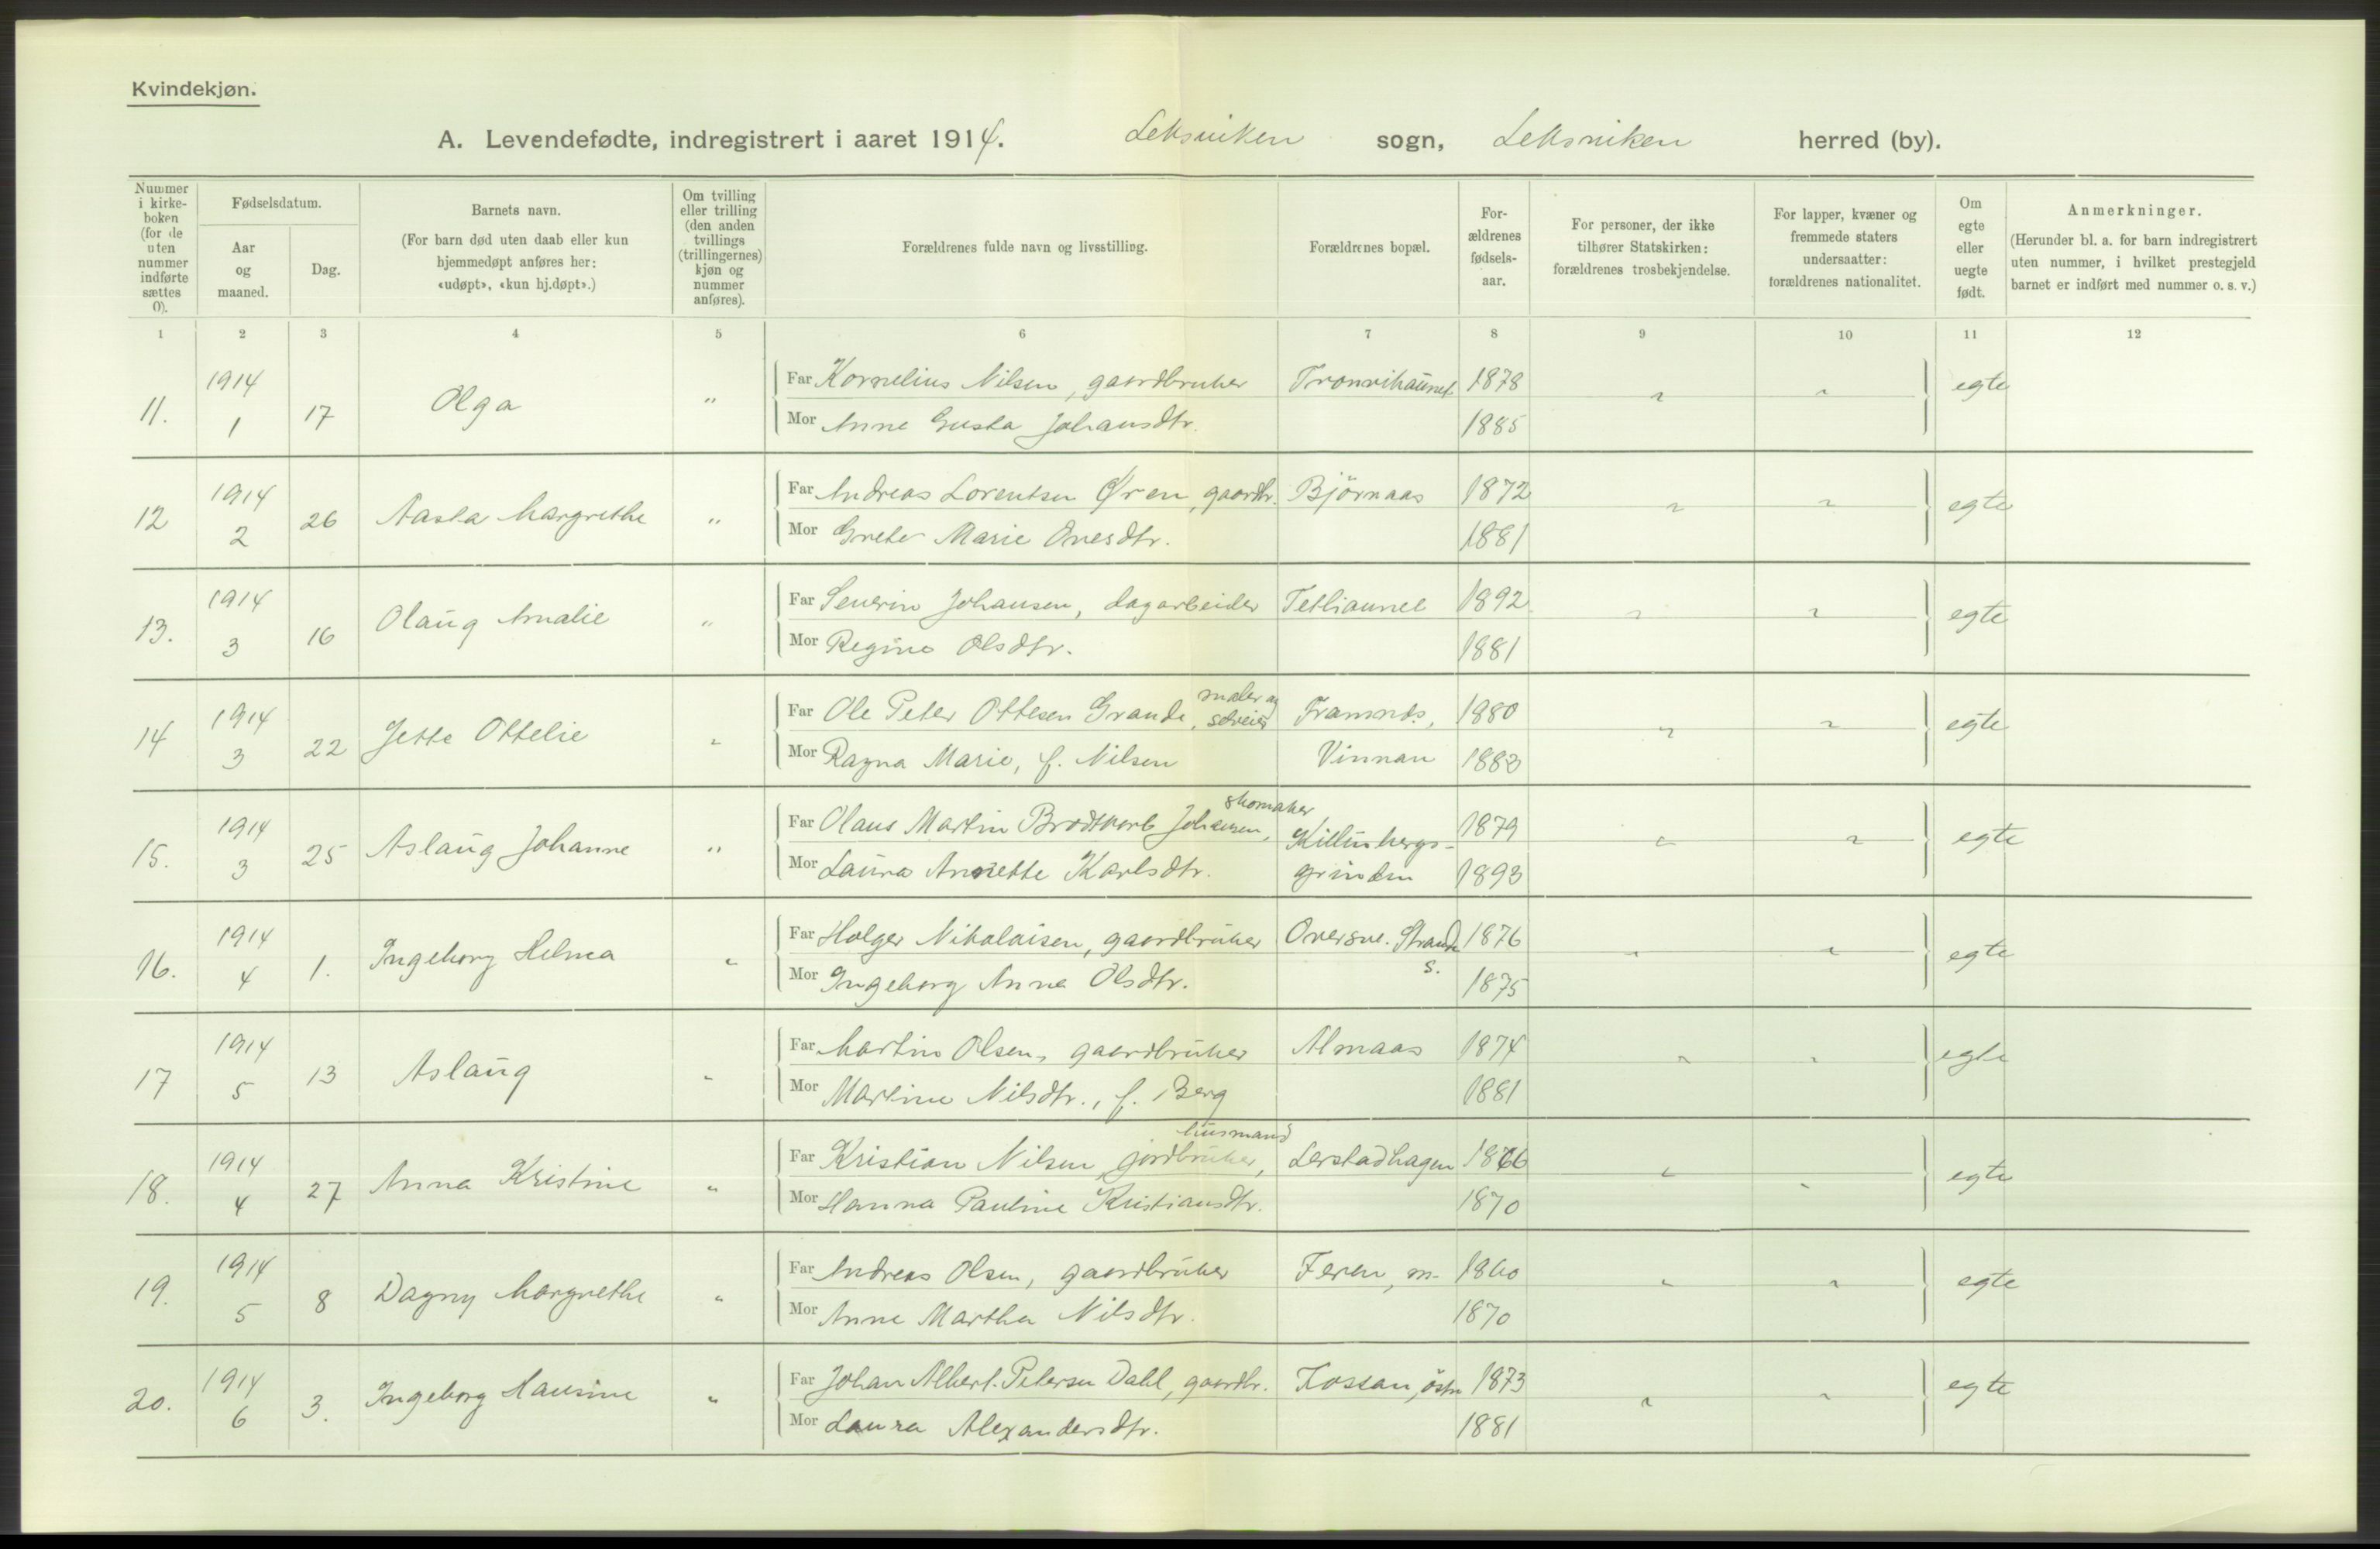 Kvindekjøn.
A. Levendefødte, indregistrert i aaret 1914. Leksviken sogn, Leksviken herred (by).
Nummer i kirkeboken (for de uten nummer indførte sættes 0).
Fødselsdatum.
Aar og maaned.
Dag.
Barnets navn.
(For barn død uten daab eller kun hjemmedøpt anføres her: «udøpt», «kun hj.døpt».)
Om tvilling eller trilling (den anden tvillings (trillingernes) kjøn og nummer anføres).
Forældrenes fulde navn og livsstilling.
Forældrenes bopæl.
Forældrenes fødselsaar.
For personer, der ikke tilhører Statskirken: forældrenes trosbekjendelse.
For lapper, kvæner og fremmede staters undersaatter: forældrenes nationalitet.
Om egte eller uegte født.
Anmerkninger.
(Herunder bl. a. for barn indregistrert uten nummer, i hvilket prestegjeld barnet er indført med nummer o. s. v.)
1 2 3 4 5 6 7 8 9 10 11 12
11. 1914 1 17 Olga " Far Kornelius Nilsen, gaardbruker 1878 " " egte
Mor Anne Gusta Johansdtr. 1885
12 1914 2 26 Aasta Margrethe " Far Andreas Lorentsen Øren, gaardbr. Björnaas 1872 " " egte
Mor Grete Marie Ovesdtr. 1881
13. 1914 3 16 Olaug Amalie " Far Severin Johansen, dagarbeider 1892 " " egte
Mor Regine Olsdtr. 1881
14 1914 3 22 Jette Ottelie " Far Ole Peter Ottesen Grande, maler og selveier Framnes, 1880 " " egte
Mor Ragna Marie, f. Nilsen Vinnan 1883
15. 1914 3 25 Aslaug Johanne " Far Olaus Martin Brodtkorb Johansen, skomaker 1879 " " egte
Mor Laura Annette Karlsdtr. grinden 1893
16. 1914 4 1. Ingeborg Helma " Far Holger Nikolaisen, gaardbruker Strand 1876 " " egte
Mor Ingeborg Anna Olsdtr. s. 1875
17 1914 5 13 Aslaug " Far Martin Olsen, gaardbruker Almaas 1874 " " egte
Mor Martine Nilsdtr., f. Berg 1881
18. 1914 4 27 Anna Kristine " Far Kristian Nilsen, jordbruker, husmand Lerstadhagen 1866 " " egte
Mor Hanna Pauline Kristiansdtr. 1870
19. 1914 5 8 Dagny Margrethe " Far Andreas Olsen, gaardbruker Feren, m. 1860 " " egte
Mor Anne Martha Nilsdtr. 1870
20. 1914 6 3. Ingeborg Hansine " Far Johan Albert Petersen Dahl, gaardbr. 1873 " " egte
Mor Laura Alexandersdtr. 1881